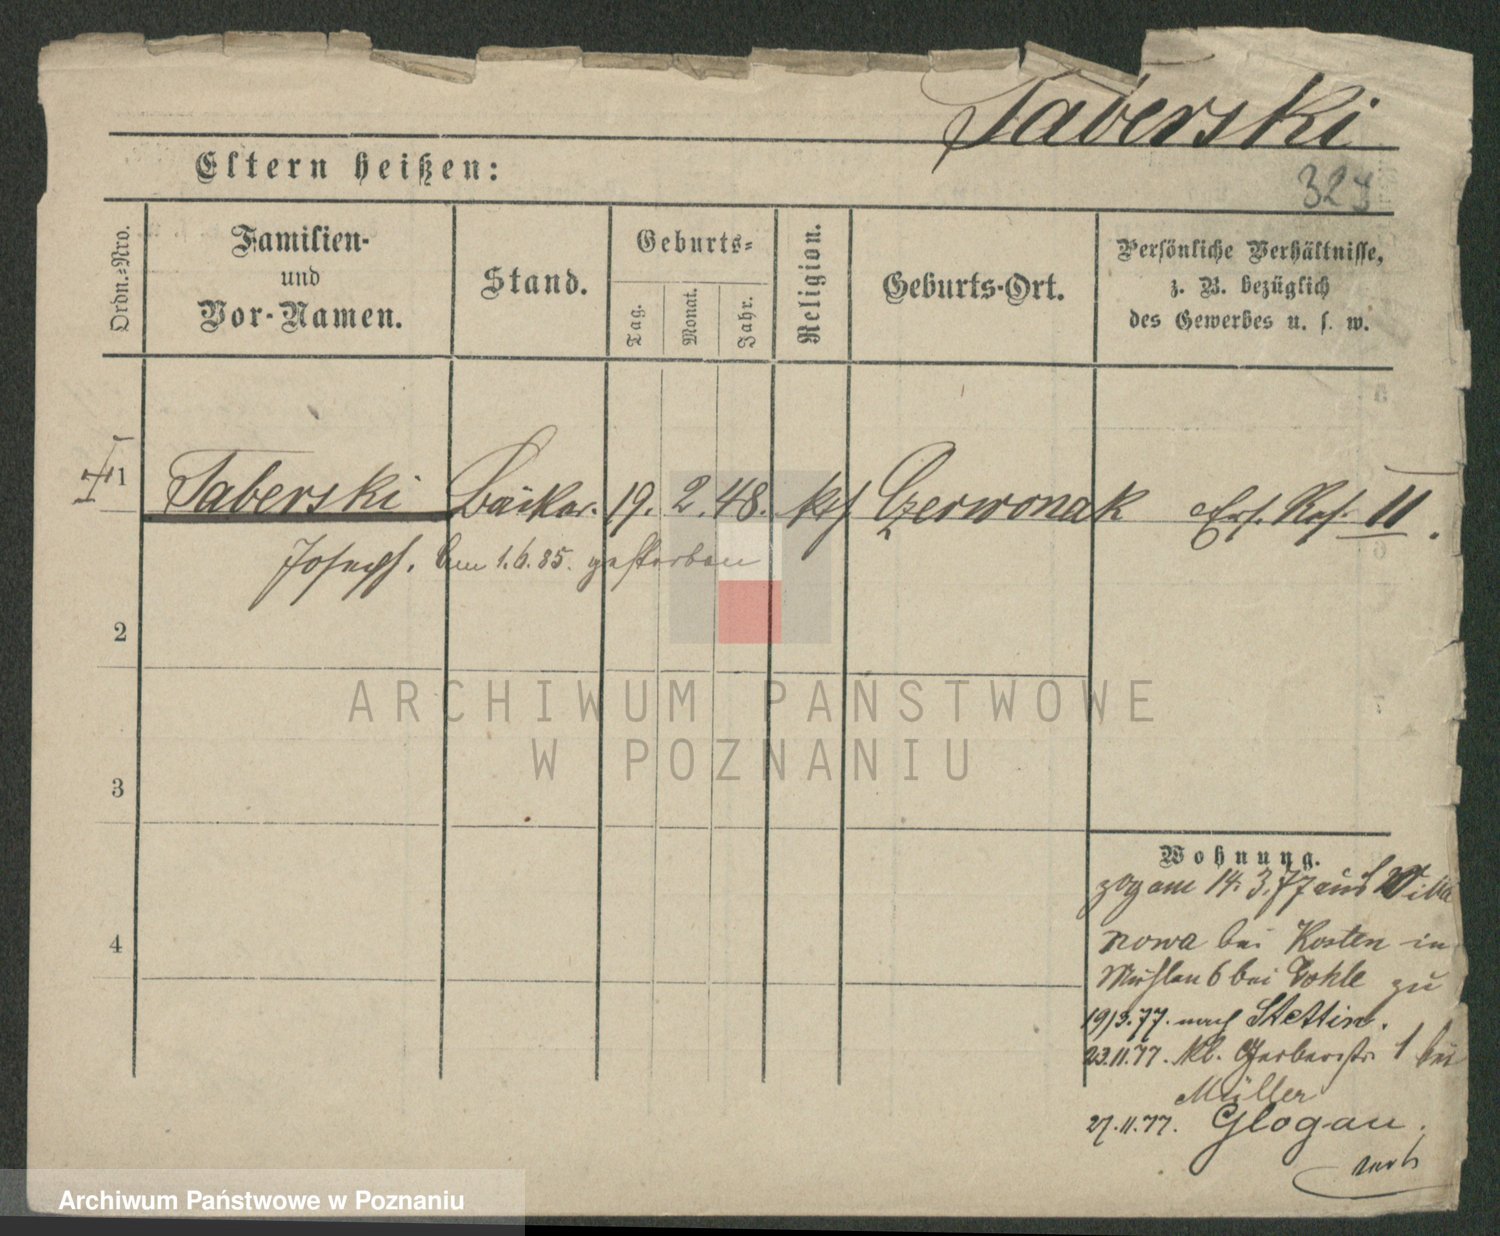 Taberski
Eltern heißen:
323
Ordn.-Nro.
Familien-
und
Vor-Namen.
Stand.
Geburts-
Tag.
Monat.
Jahr.
Religion.
Geburts-Ort.
Persönliche Verhältnisse,
z. B. bezüglich
des Gewerbes u. s. w.
1
Taberski Bäcker. 19. 2. 48. kth Czerwonak Ers. Res. II.
Joseph. am 1.6.85. gestorben
2
ARCHIWUM PAŃSTWOWE
W POZNANIU
3
Wohnung.
zog am 14.3.77 aus Willa
nowa bei Kosten in
Mühlen 6 bei Tohle zu
19/3.77. nach Stettin.
23.11.77. Kl. Gerberstr. 1 bei
Müller
4
27.11.77. Glogau.
Archiwum Państwowe w Poznaniu